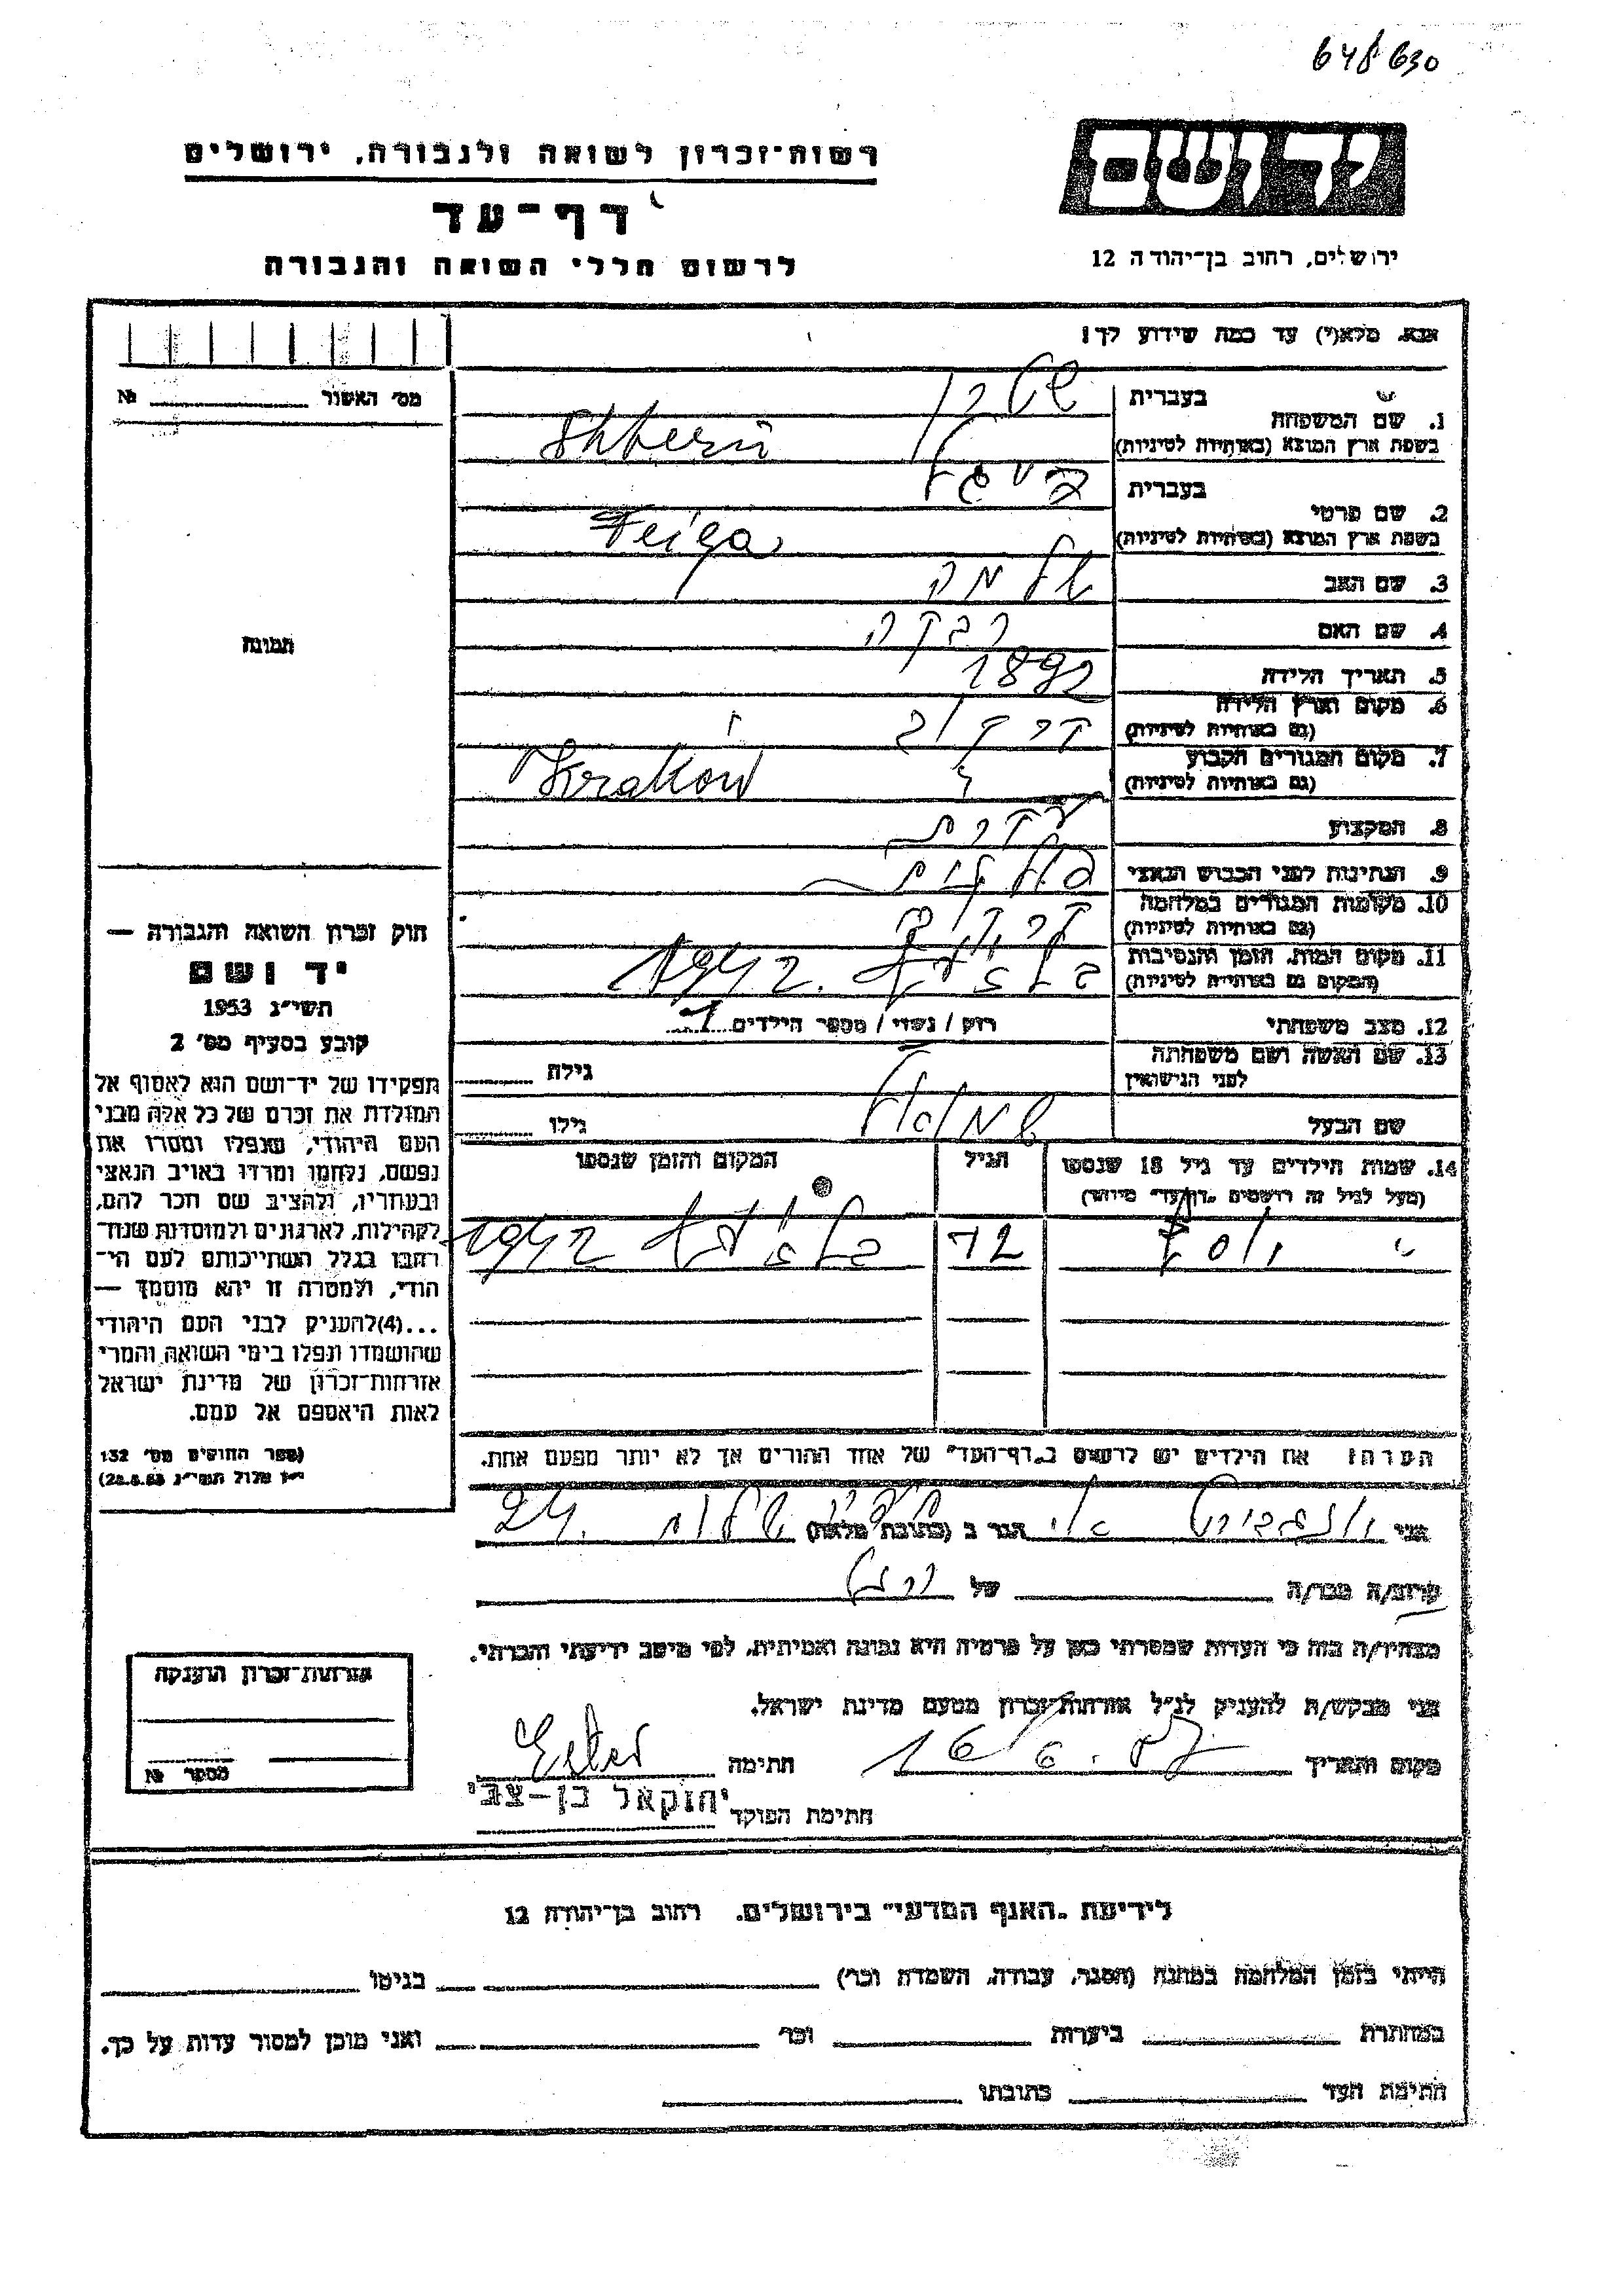 648630
רשות־זכרון לשואה ולגבורה, ירושלים
דף־עד
לרשום חללי השואה והגבורה
יד ושם
ירושלים, רחוב בן־יהודה 12
אנא, מלא(י) עד כמה שידוע לך!
מס' האשור № 
תמונה
1. שם המשפחה
בעברית
בשפת ארץ המוצא (באותיות לטיניות) Shtern
2. שם פרטי
בעברית פייגא
בשפת ארץ המוצא (באותיות לטיניות) Feiga
3. שם האב שלמה
4. שם האם רבקה
5. תאריך הלידה 1892
6. מקום וארץ הלידה
(גם באותיות לטיניות) קרקוב
7. מקום המגורים הקבוע
(גם באותיות לטיניות) Krakow
8. המקצוע עקרת
9. הנתינות לפני הכבוש הנאצי פולנית
10. מקומות המגורים במלחמה
(גם באותיות לטיניות) קרקוב
11. מקום המות, הזמן והנסיבות
(המקום גם באותיות לטיניות) 1942
12. מצב משפחתי רוק / נשוי / מספר הילדים 1
13. שם האשה ושם משפחתה
לפני הנישואין
גילה
שם הבעל שמואל
גילו
14. שמות הילדים עד גיל 18 שנספו
(מעל לגיל זה רושמים „דף־עד" מיוחד)
הגיל
המקום והזמן שנספו
יוסף 1942
הערה: את הילדים יש לרשום ב„דף־העד" של אחד ההורים אך לא יותר מפעם אחת.
חוק זכרון השואה והגבורה —
יד ושם
תשי״ג 1953
קובע בסעיף מס' 2
תפקידו של יד־ושם הוא לאסוף אל
המולדת את זכרם של כל אלה מבני
העם היהודי, שנפלו ומסרו את
נפשם, נלחמו ומרדו באויב הנאצי
ובעוזריו, ולהציב שם וזכר להם,
לקהילות, לארגונים ולמוסדות שנח־
רבו בגלל השתייכותם לעם הי־
הודי, ולמטרה זו יהא מוסמך —
...(4)להעניק לבני העם היהודי
שהושמדו ונפלו בימי השואה והמרי
אזרחות־זכרון של מדינת ישראל
לאות היאספם אל עמם.
(ספר החוקים מס' 132
י״ז אלול תשי״ג 28.8.53)
אני הגר ב (כתובת מלאה) 24
קרוב/ה מכר/ה של
מצהיר/ה בזה כי העדות שמסרתי כאן על פרטיה היא נכונה ואמיתית, לפי מיטב ידיעתי והכרתי.
אני מבקש/ת להעניק לנ״ל אזרחות־זכרון מטעם מדינת ישראל.
מקום ותאריך 16.6.87 חתימה Ester
חתימת הפוקד יחזקאל בן-צבי
אזרחות־זכרון הוענקה
מספר №
לידיעת „האגף המדעי" בירושלים, רחוב בן־יהודה 12
הייתי בזמן המלחמה במחנה (הסגר, עבודה, השמדה וכו') בגיטו
במחתרת ביערות וכו' ואני מוכן למסור עדות על כך.
חתימת העד כתובתו